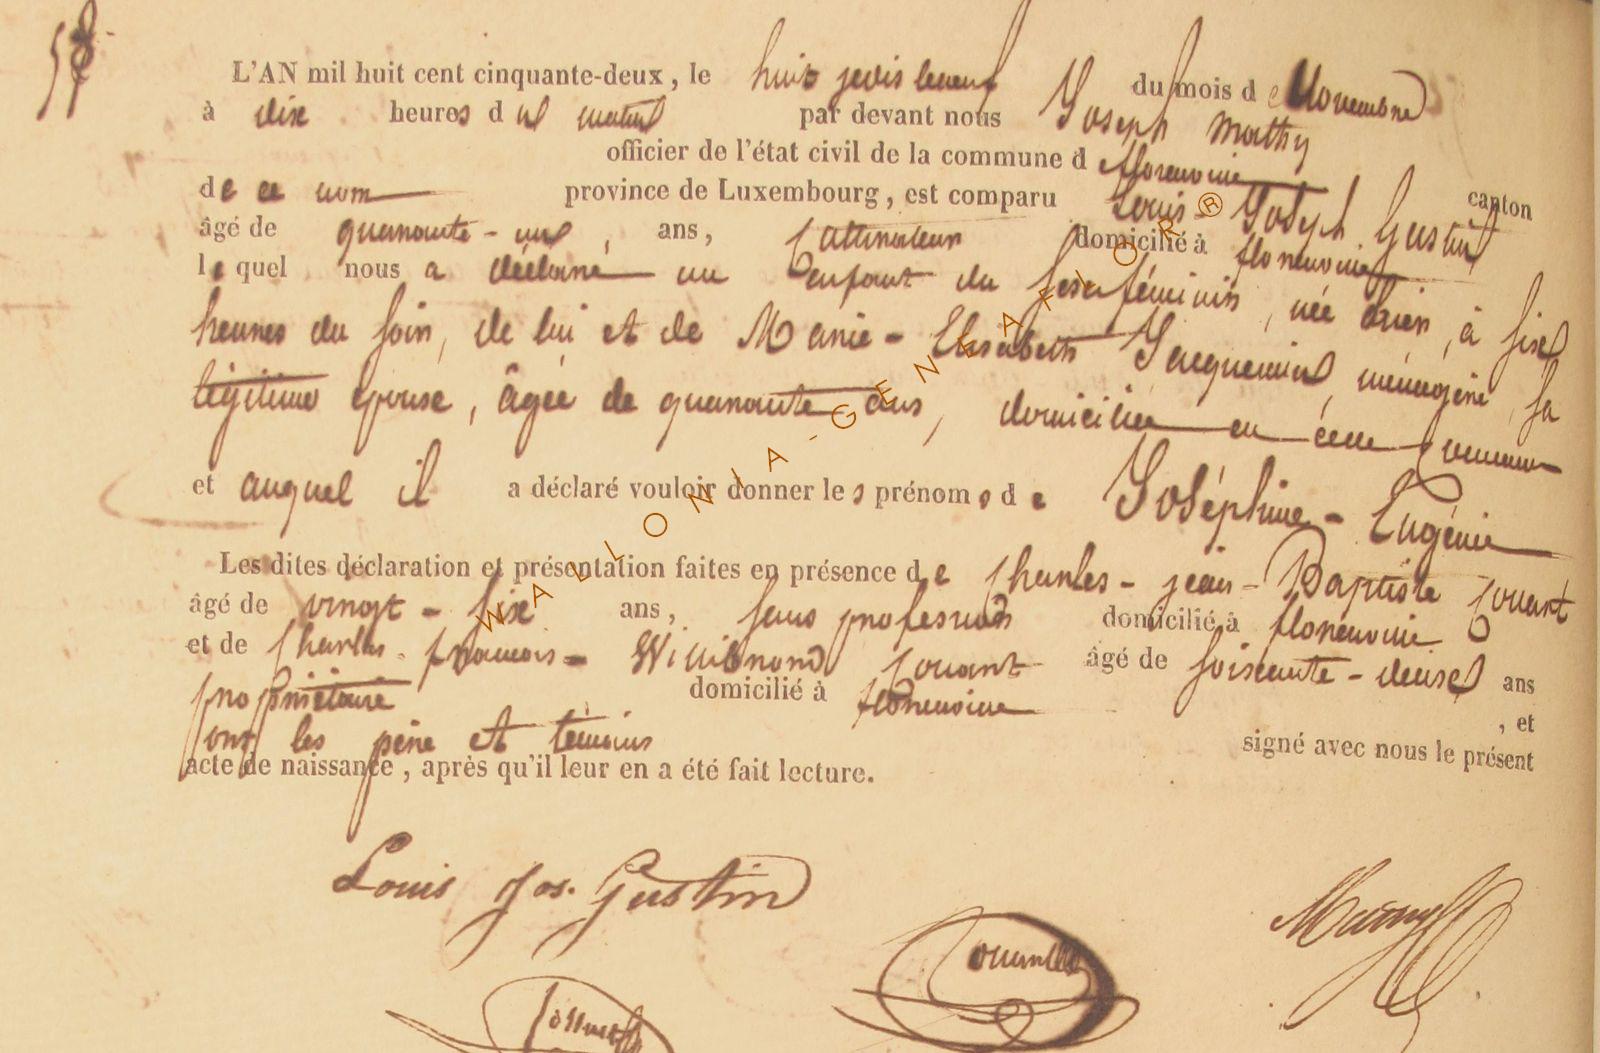 58
L'AN mil huit cent cinquante-deux, le huit du mois de Novembre
à dix heures du matin par devant nous Joseph Mathy
officier de l'état civil de la commune d florenville canton
de ce nom province de Luxembourg, est comparu Louis-Joseph Gustin
âgé de quarante-un, ans, cultivateur domicilié à florenville
lequel nous a déclaré un enfant du sexe féminin, née hier, à six
heures du soir, de lui et de Marie-Elisabeth Jacquemin, ménagère, sa
légitime épouse, âgée de quarante ans, domiciliée en cette commune
et auquel il a déclaré vouloir donner les prénoms de Joséphine-Eugénie
Les dites déclaration et présentation faites en présence de Charles-jean-Baptiste
âgé de vingt-six ans, sans profession domicilié à florenville
et de Charles-françois- âgé de soixante-deux ans
propriétaire domicilié à florenville, et
ont les père et témoins signé avec nous le présent
acte de naissance, après qu'il leur en a été fait lecture.
Louis Jos. Gustin
WALLONIA-GENEAFLOR®